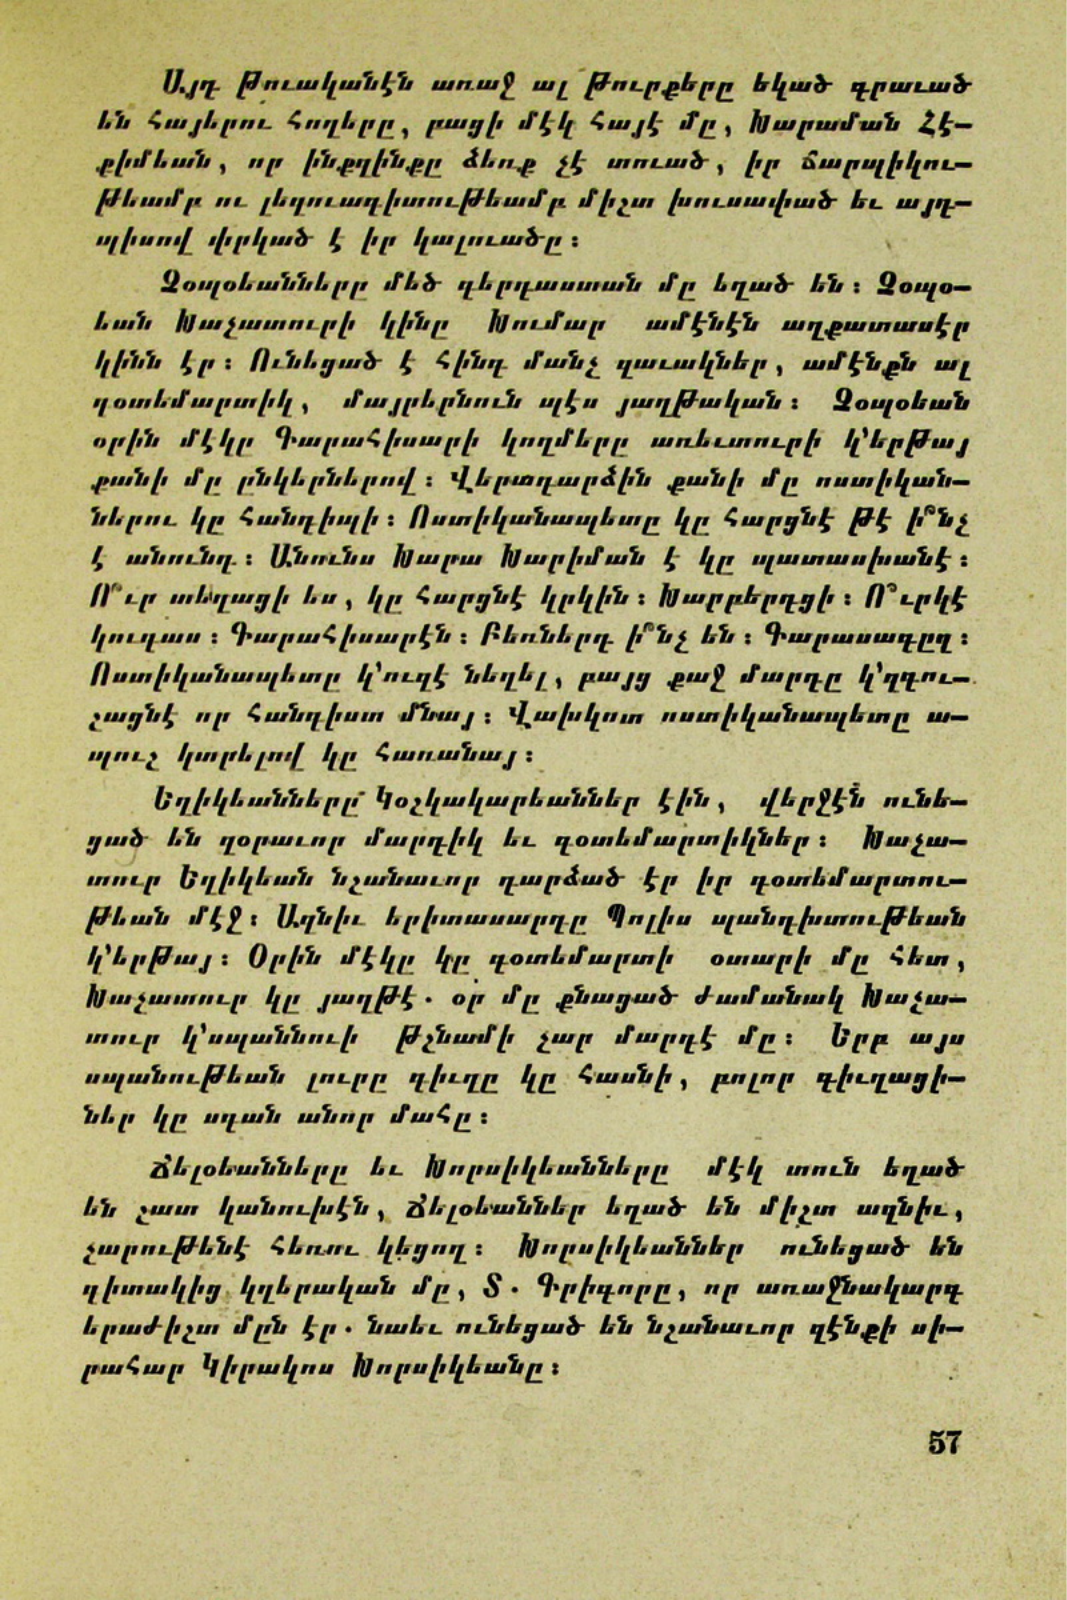 Այդ թուականէն առաջ ալ թուրքերը եկած գրաւած
են հայերու հողերը, բացի մէկ հայէ մը, Խարաման Հէ—
քիմեան, որ ինքզինքը ձեռք չէ տուած, իր ճարպիկու—
թեամբ ու լեզուագիտութեամբ միշտ խուսափած եւ այդ—
պիսով փրկած է իր կալուածը։
Չօպօեանները մեծ գերդաստան մը եղած են։ Չօպօ—
եան Խաչատուրի կինը Խումար ամէնէն աղքատասէր
կինն էր։ Ունեցած է հինգ մանչ զաւակներ, ամէնքն ալ
գօտեմարտիկ, մայրերնուն պէս յաղթական։ Չօպօեան
օրին մէկը Գարահիսարի կողմերը առեւտուրի կ՚երթայ
քանի մը ընկերներով։ Վերադարձին քանի մը ոստիկան—
ներու կը հանդիպի։ Ոստիկանապետը կը հարցնէ թէ ի՞նչ
է անունդ։ Անունս Խարա Խարիման է կը պատասխանէ։
Ո՞ւր տեղացի ես, կը հարցնէ կրկին։ Խարբերդցի։ Ո՞ւրկէ
կուգաս։ Գարահիսարէն։ Բեռներդ ի՞նչ են։ Գարասագըզ։
Ոստիկանապետը կ՚ուզէ նեղել, բայց քաջ մարդը կ՚զգու—
շացնէ որ հանդիստ մնայ։ Վախկոտ ոստիկանապետը ա—
պուչ կտրելով կը հառանայ։
Եղիկեանները Կօշկակարեաններ էին, վերջէն ունե—
ցած են զօրաւոր մարդիկ եւ գօտեմարտիկներ։ Խաչա—
տուր Եղիկեան նշանաւոր դարձած էր իր գօտեմարտու—
թեան մէջ։ Ազնիւ երիտասարդը Պոլիս պանդխտութեան
կ՚երթայ։ Օրին մէկը կը գօտեմարտի օտարի մը հետ,
Խաչատուր կը յաղթէ. օր մը քնացած ժամանակ Խաչա—
տուր կ՚սպաննուի թշնամի չար մարդէ մը։ Երբ այս
սպանութեան լուրը գիւղը կը հասնի, բոլոր գիւղացի—
ներ կը սգան անոր մահը։
Ճելօեանները եւ Խորսիկեանները մէկ տուն եղած
են շատ կանուխէն, Ճելօեաններ եղած են միշտ ազնիւ,
չարութենէ հեռու կեցող։ Խորսիկեաններ ունեցած են
գիտակից կղերական մը, Տ. Գրիգորը, որ առաջնակարգ
երաժիշտ մըն էր. նաեւ ունեցած են նշանաւոր զէնքի սի—
րահար Կիրակոս Խորսիկեանը։
57